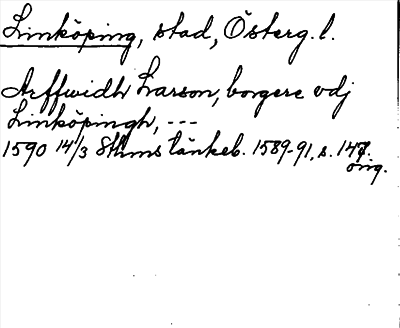 Linköping, stad, Österg. l.
Arffwidh Larson, borgere vdj
Linköpingh, ---
1590 14/3 Sthms tänkeb. 1589-91, s. 147.
orig.